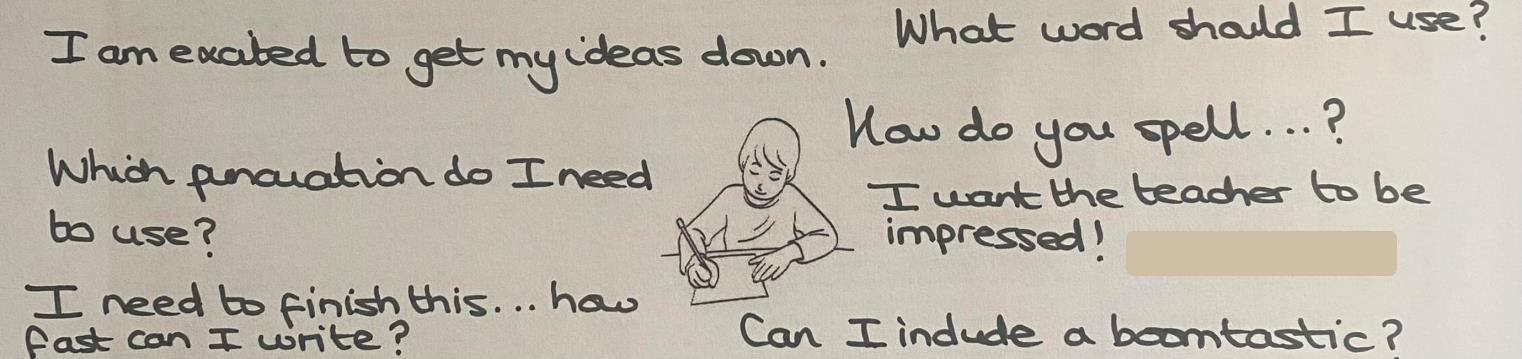 I am excited to get my ideas down.
What word should I use?
How do you spell....?
Which puncuation do I need
to use?
I want the teacher to be
impressed!
I need to finish this... how
fast can I write?
Can I include a boomtastic?